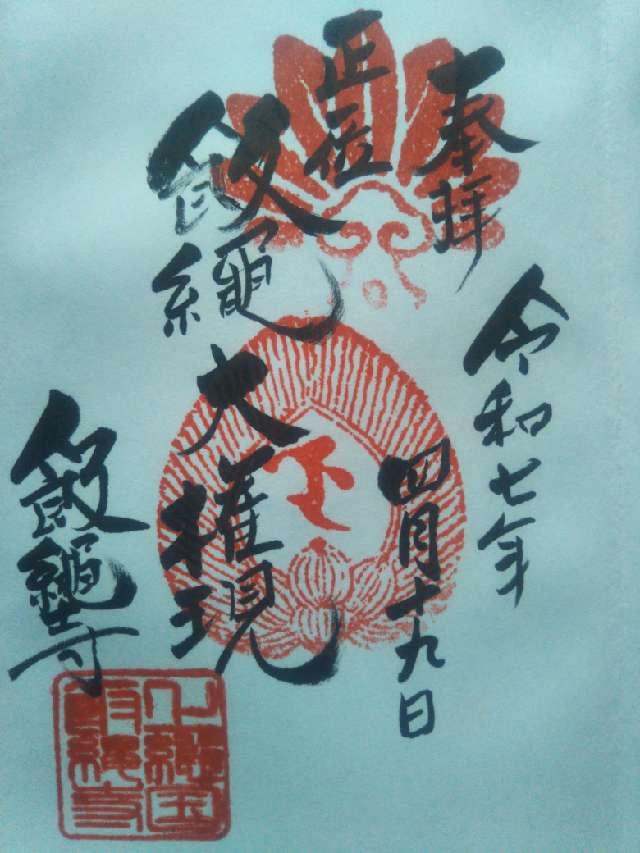 奉拝
令和七年
四月十九日
正一位
飯縄大権現
飯縄寺